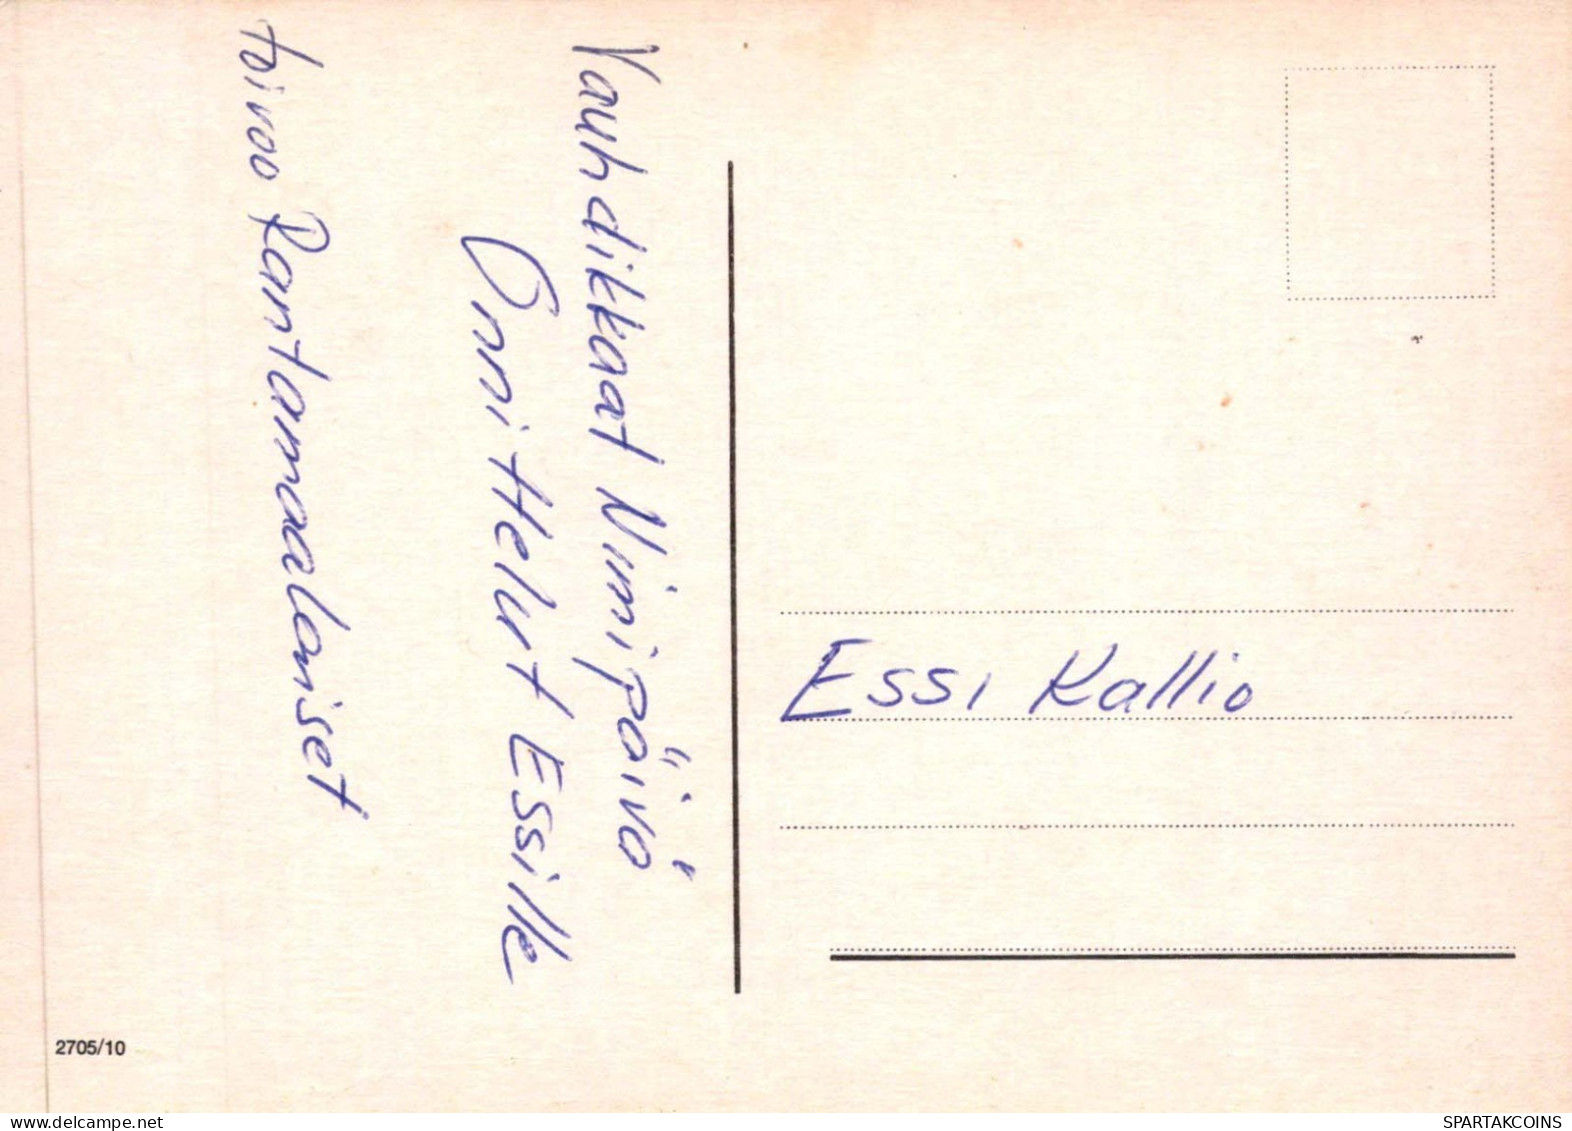 Vauhdikkaat Nimipäivä
Onnittelut Essille
toivoo Rantamaalaiset
Essi Kallio
2705/10
delcampe.net
SPARTAKCOINS